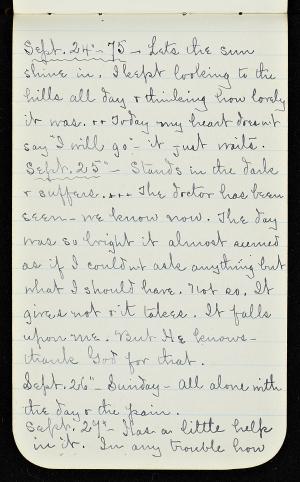 Sept. 24" - 75 - Lets the sun
shine in. I kept looking to the
hills all day & thinking how lovely
it was. .. Today my heart doesn't
say "I will go" - it just waits.
Sept. 25" - Stands in the dark
& suffers. ... The doctor has been
seen - we know now. The day
was so bright it almost seemed
as if I couldn't ask anything but
what I should have. Not so. It
gives not & it takes. It falls
upon me. But He knows -
thank God for that.
Sept. 26" - Sunday - All alone with
the day & the pain.
Sept. 27" - Has a little help
in it. In any trouble how